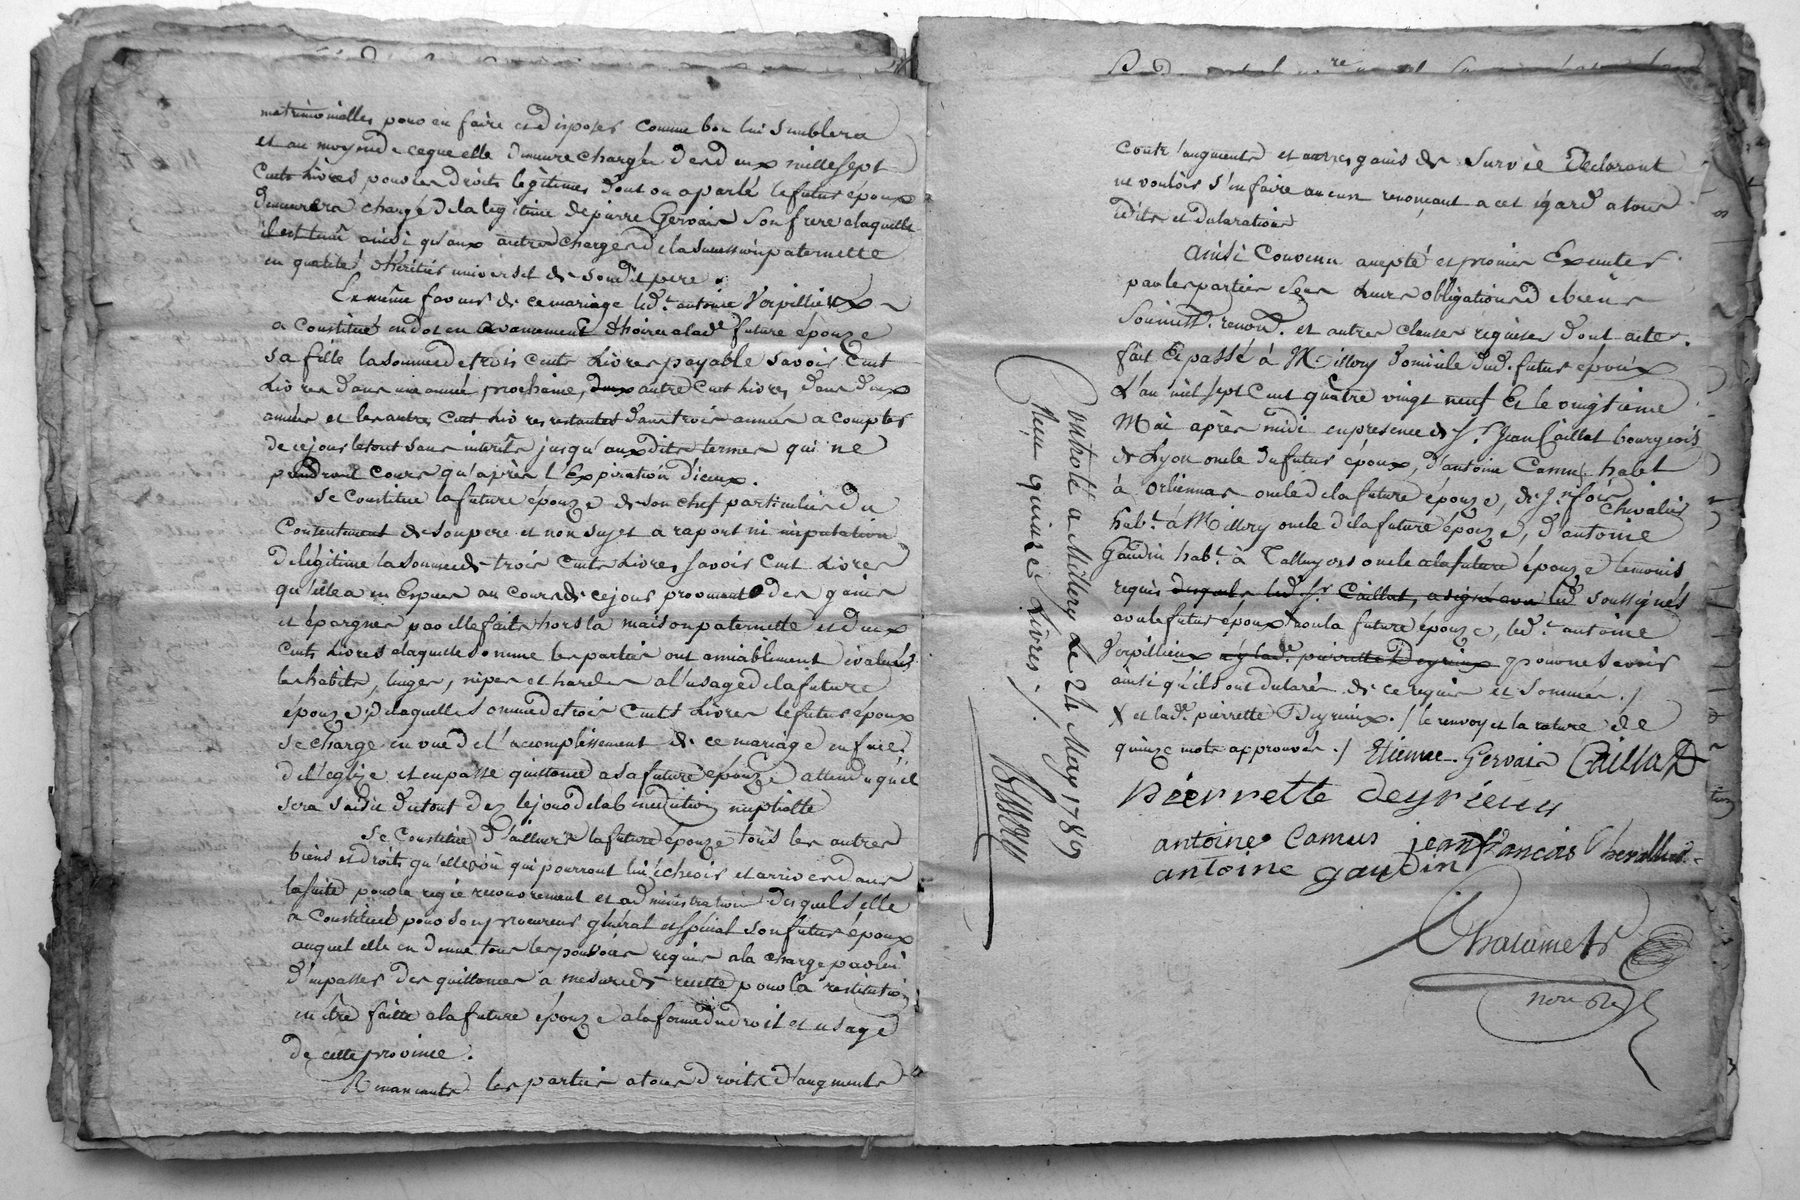 matrimonialles pour en faire et disposer comme bon lui semblera
et au moyen de ce que elle demeure chargée des deux mille sept
cents Livres pour les droits légitimes dont on a parlé le futur époux
demeurera chargé de la légitime de pierre Gervais Son frere a laquelle
il est tenû ainsi qu'aux autres charges de la succession paternelle
en qualité d'héritier universel de son dt pere.
En même faveur de ce mariage led.t antoine Vorpillieux
a Constitué en dot en avancement d'hoirie a lad.e future épouze
sa fille la somme de trois cents Livres payable savoir Cent
Livres dans une année prochaine, autre Cent Livres dans deux
années et les autres Cent Livres restantes dans trois années a compter
de ce jour le tout sans intérêts jusqu'auxdits termes qui ne
prendront cours qu'après L'Expiration d'iceux.
Se Constitue la future épouze de son chef particulier du
Contentement de son pere et non sujet a raport ni imputation
de légitime la somme de trois Cents Livres, savoir Cent Livres
qu'elle a en Especes au cours de ce jour provenant des gains
et épargnes par elle faits hors la maison paternelle et deux
cents Livres a laquelle somme les parties ont amiablement évalués
les habits, linges, nipes et hardes a l'usage de la future
épouze, de laquelle somme de trois Cents Livres le futur époux
se charge en vue de l'accomplissement de ce mariage en face
de l'eglise et en passe quittance a sa future épouze attendu qu'il
sera saisi du tout dez le jour de la bénédiction nuptialle
Se Constitue d'ailleurs la future épouze tous les autres
biens et droits qu'elle a ou qui pourront lui écheoir et arriver dans
la suite pour la regie recouvrement et administration desquels elle
a Constitué pour son procureur général et spécial son futur époux
auquel elle en donne tous les pouvoirs requis a la charge par lui
d'en passer des quittances a mesure de recette pour la restitution
en être faitte a la future épouze a la forme du droit et usage
de cette province.
Renoncants les parties a tous droits d'augments
contr'augments et autres gains de Survie Déclarant
ne vouloir s'en faire aucun renonçant a cet égard a tous
Edits et déclarations
Ainsi Convenu accepté et promis Exécuter
par les parties sous Leurs obligations de biens
Soumiss. renon. et autres clauses requises dont acte.
fait Et passé à Millery domicile dud. futur époux
L'an mil sept cent quatre vingt neuf Et le vingtieme
Mai après midi en presence de Sr. Jean Caillat bourgeois
de Lyon oncle du futur époux, d'antoine Camus habt
à Orliennas oncle de la future épouze, de Jn. fois Chevalier
hab.t à Millery oncle de la future épouze, d'antoine
Gaudin hab.t à Talluyers oncle a la future épouze témoins
requis desquels led. Sr Caillat, a signé avec led. soussignés
avec le futur époux non la future épouze, led.t antoine
Vorpillieux et lad.e pierrette Deyrieux pour ne savoir
ainsi qu'ils ont déclarés de ce requis et sommés. /
X et lad.e pierrette Deyrieux. / le renvoy et la rature de
quinze mots approuvés. / Etienne Gervais Caillat
pierrette deyrieux
antoine Camus jean francois Chevallier
antoine gaudin
Chalamel
Controllé a Millery Le 24 May 1789
Reçu quinze Livres /.